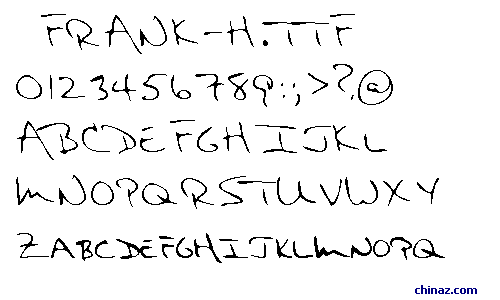 FRANK-H.TTF
0123456789:;>?@
ABCDEFGHIJKL
MNOPQRSTUVWXY
ZABCDEFGHIJKLMNOPQ
chinaz.com